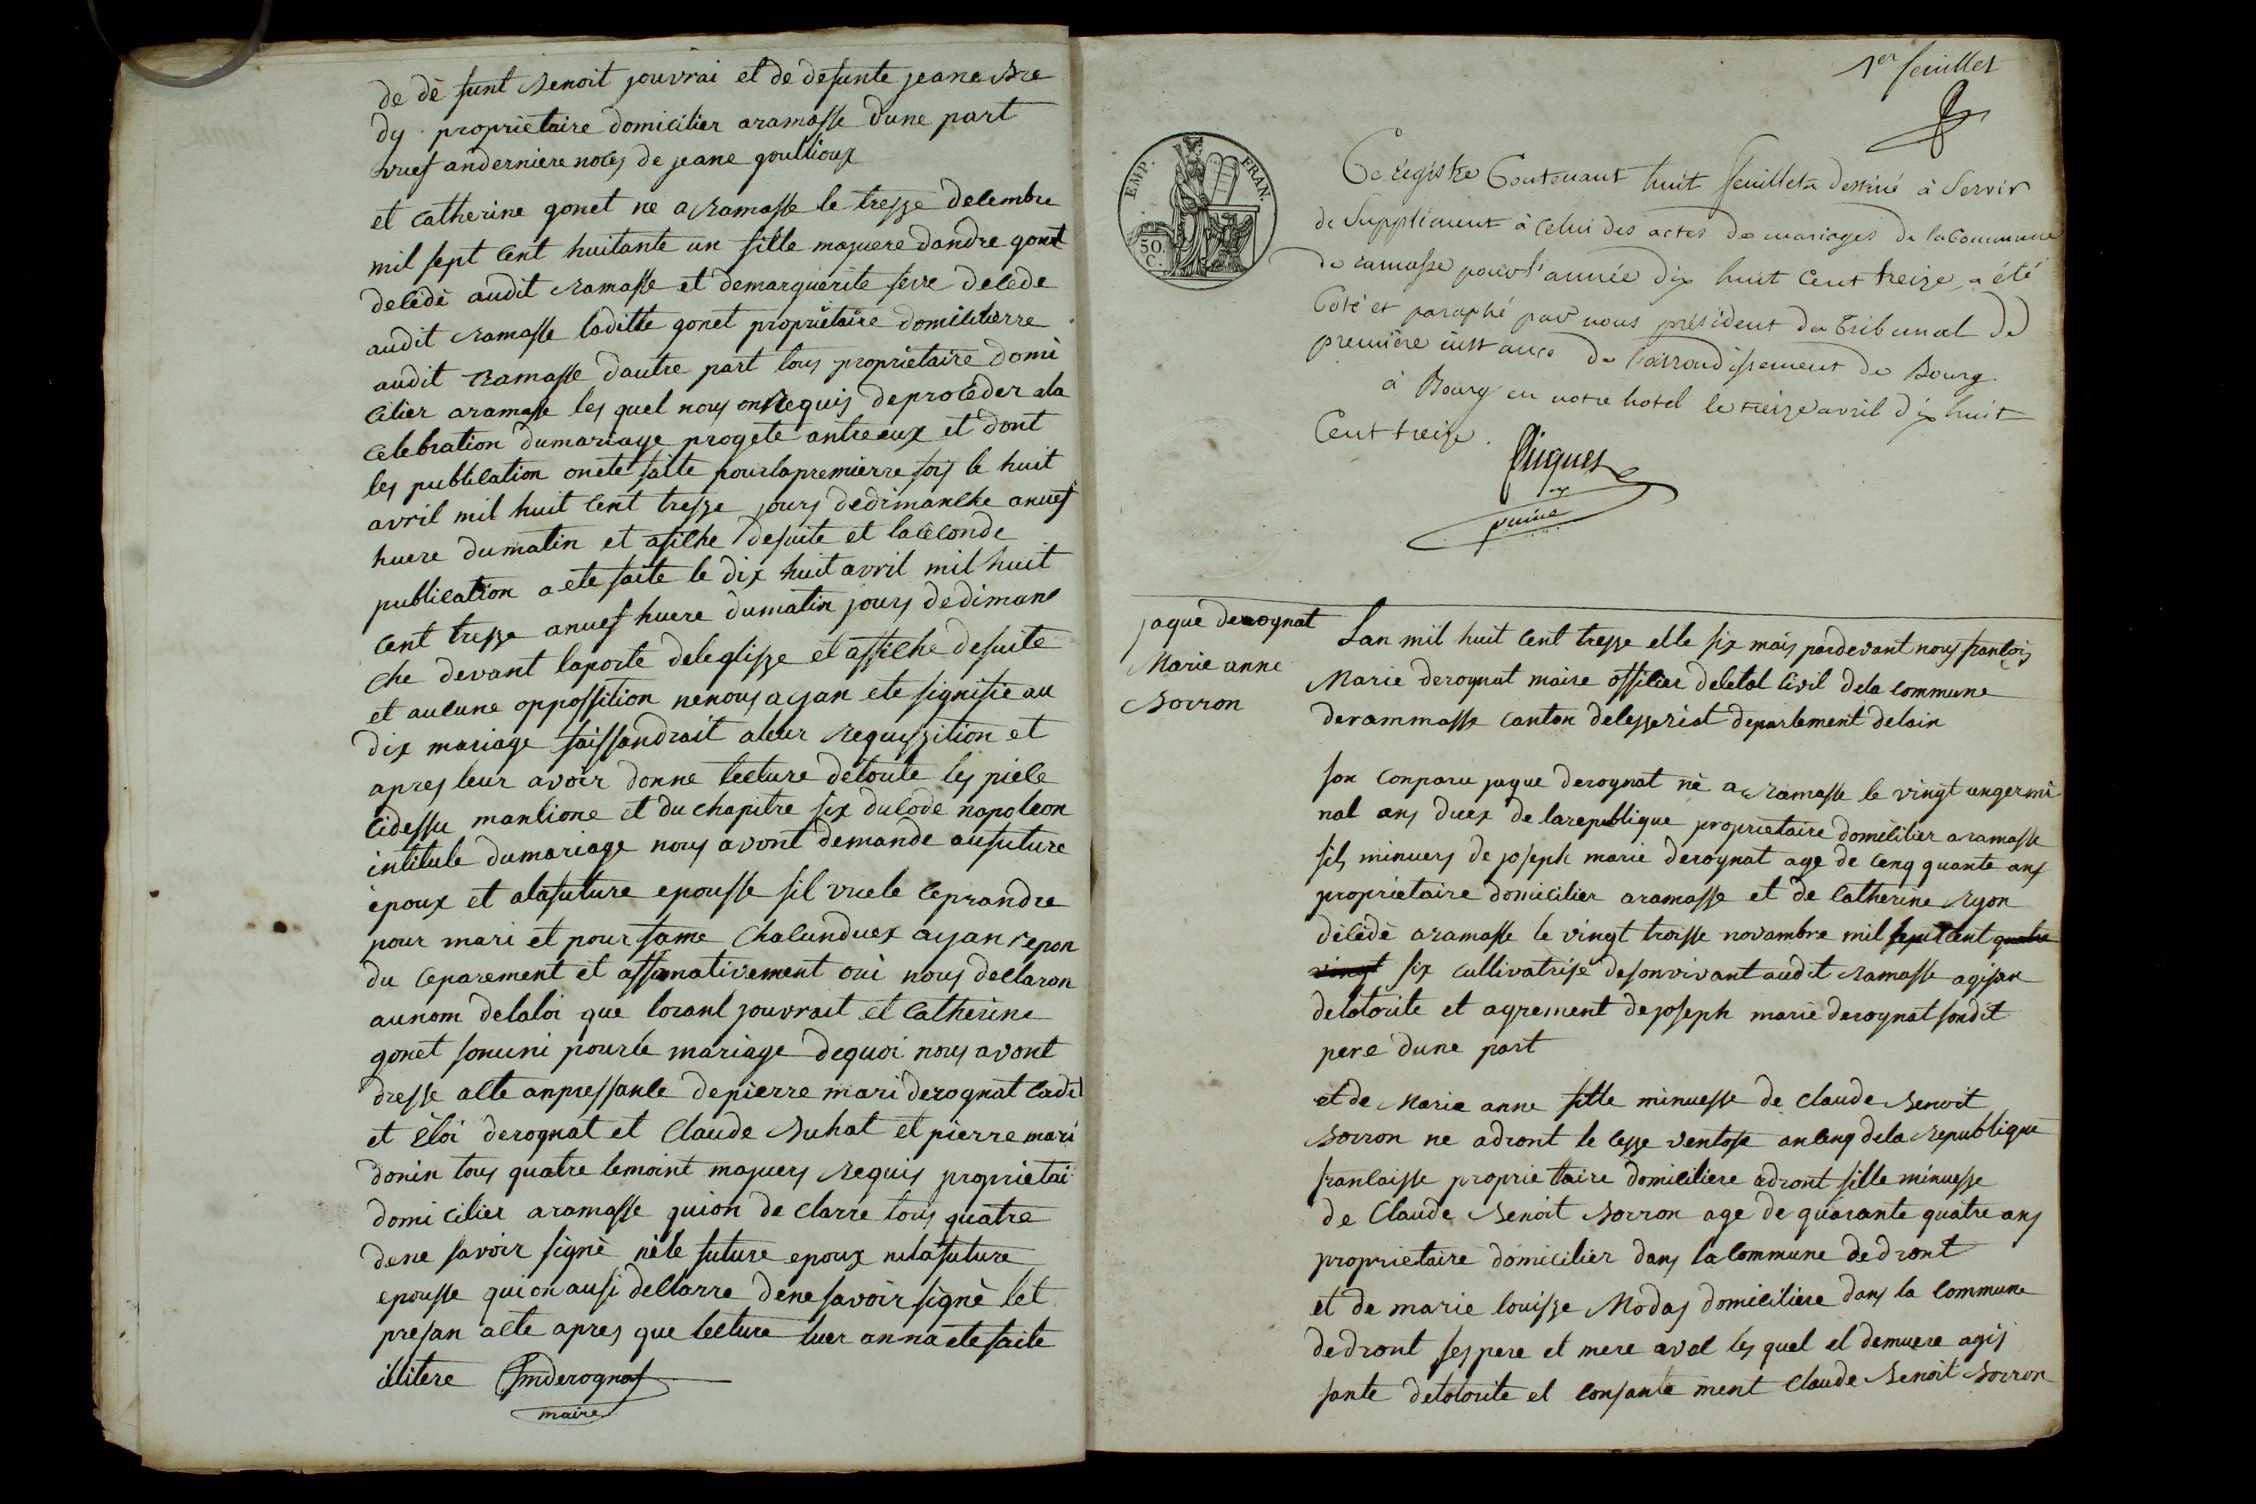 de dè funt Benoit jouvrai et de defunte jeane Bre
dy proprietaire domicilier aramasse dune part
vuef anderniere noces de jeane goullioux
et catherine gonet ne a Ramasse le tresze decembre
mil sept cent huitante un fille majuere dandre gonet
decédè audit Ramasse et demarguerite ferre decede
audit Ramasse laditte gonet proprietaire domicilierre
audit Ramasse dautre part tous proprietaire domi
cilier aramasse les quel nous on Requis deproceder ala
celebration dumariage progete antre eux et dont
les publication onete faite pourlapremierre fois le huit
avril mil huit cent tresze jours dedimanche anuef
huere dumatin et afiche desuite et laceconde
publication aete faite le dix huit avril mil huit
cent tresze anuef huere dumatin jours dediman
che devant laporte deleglisze et affiche desuite
et aucune oppossition nenous ayan ete signifie au
dix mariage faissandroit aleur Requiszition et
apres leur avoir donne lecture detoute les piece
cidessu mantione et du chapitre six ducode napoleon
intitule dumariage nous avont demande aufuture
èpoux et alafuture epousse sil vuele ceprandre
pour mari et pour fame chacunduex ayan repon
du ceparement et affamativement oui nous declaron
aunom delaloi que lorant jouvrait et catherine
gonet sonuni pourle mariage dequoi nous avont
dresse acte anpressance depierre mari derognat cadet
et Eloi derognat et Claude Buhat et pierre mari
donin tous quatre temoint majuers Requis proprietai
domicilier aramasse quion de clarre tous quatre
dene savoir signè nèle future epoux nulafuture
epousse quion ausi declarre dene savoir signè let
presan acte apres que lecture luer anna ete faite
ilitere fmderognat
maire
1er feuillet
EMP. FRAN.
50.
C.
Ce registre Contenant huit feuillets destiné à Servir
de Supplément à celui des actes de mariages de la Commune
de ramasse pour l'année dix huit Cent treize, a été
Coté et paraphé par nous président du tribunal de
première instance de l'arrondissement de Bourg.
à Bourg en notre hotel le treize avril dix huit
Cent treize.
jaque derognat
Marie anne
Borron
Lan mil huit cent tresze elle six mais pardevant nous francois
Marie derognat maire officier deletat civil dela commune
derammasse canton deceyzeriat departement delain
son conparu jaque derognat nè a Ramasse le vingt ungermi
nal ans duex de larepublique proprietaire domicilier aramasse
fils minuers de joseph marie derognat age de cenq quante ans
proprietaire domicilier aramasse et de catherine Ryon
dècèdè aramasse le vingt troisse novambre mil huit cent quatre
vingt six cultivatrisè desonvivant audit Ramasse agisan
delotorite et agrement dejoseph marie derognat sondit
pere dune part
et de Marie anne fille minuesse de claude Benoit
Borron ne adront le cesze ventose ancenq dela Republique
francaisse proprietaire domiciliere adront fille minuesze
de Claude Benoit Borron age de quarante quatre ans
proprietaire domicilier dans la Commune dedront
et de marie louisze Modas domiciliere dans la commune
dedront ses pere et mere avec les quel el demuere agis
sante delotorite et consante ment claude Benoit Borron